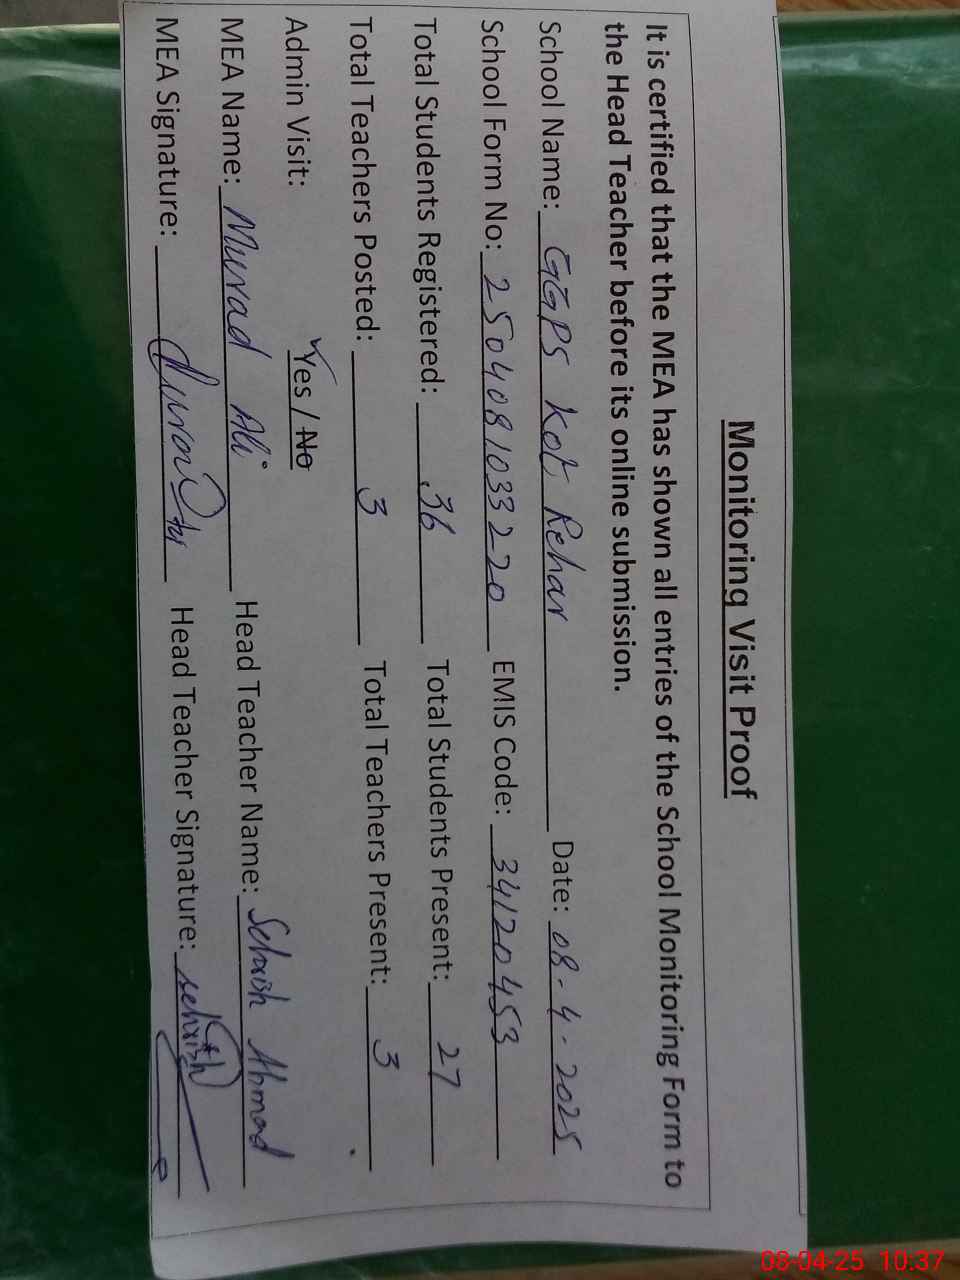 Monitoring Visit Proof
It is certified that the MEA has shown all entries of the School Monitoring Form to
the Head Teacher before its online submission.
School Name: GGPS Kot Rehar Date: 08-4-2025
School Form No: 250408103 3220 EMIS Code: 34120453
Total Students Registered: 36 Total Students Present: 27
Total Teachers Posted: 3 Total Teachers Present: 3
Admin Visit: Yes / No
MEA Name: Murad Ali Head Teacher Name: Sehrish Ahmad
MEA Signature: Head Teacher Signature: sehrish
08-04-25 10:37